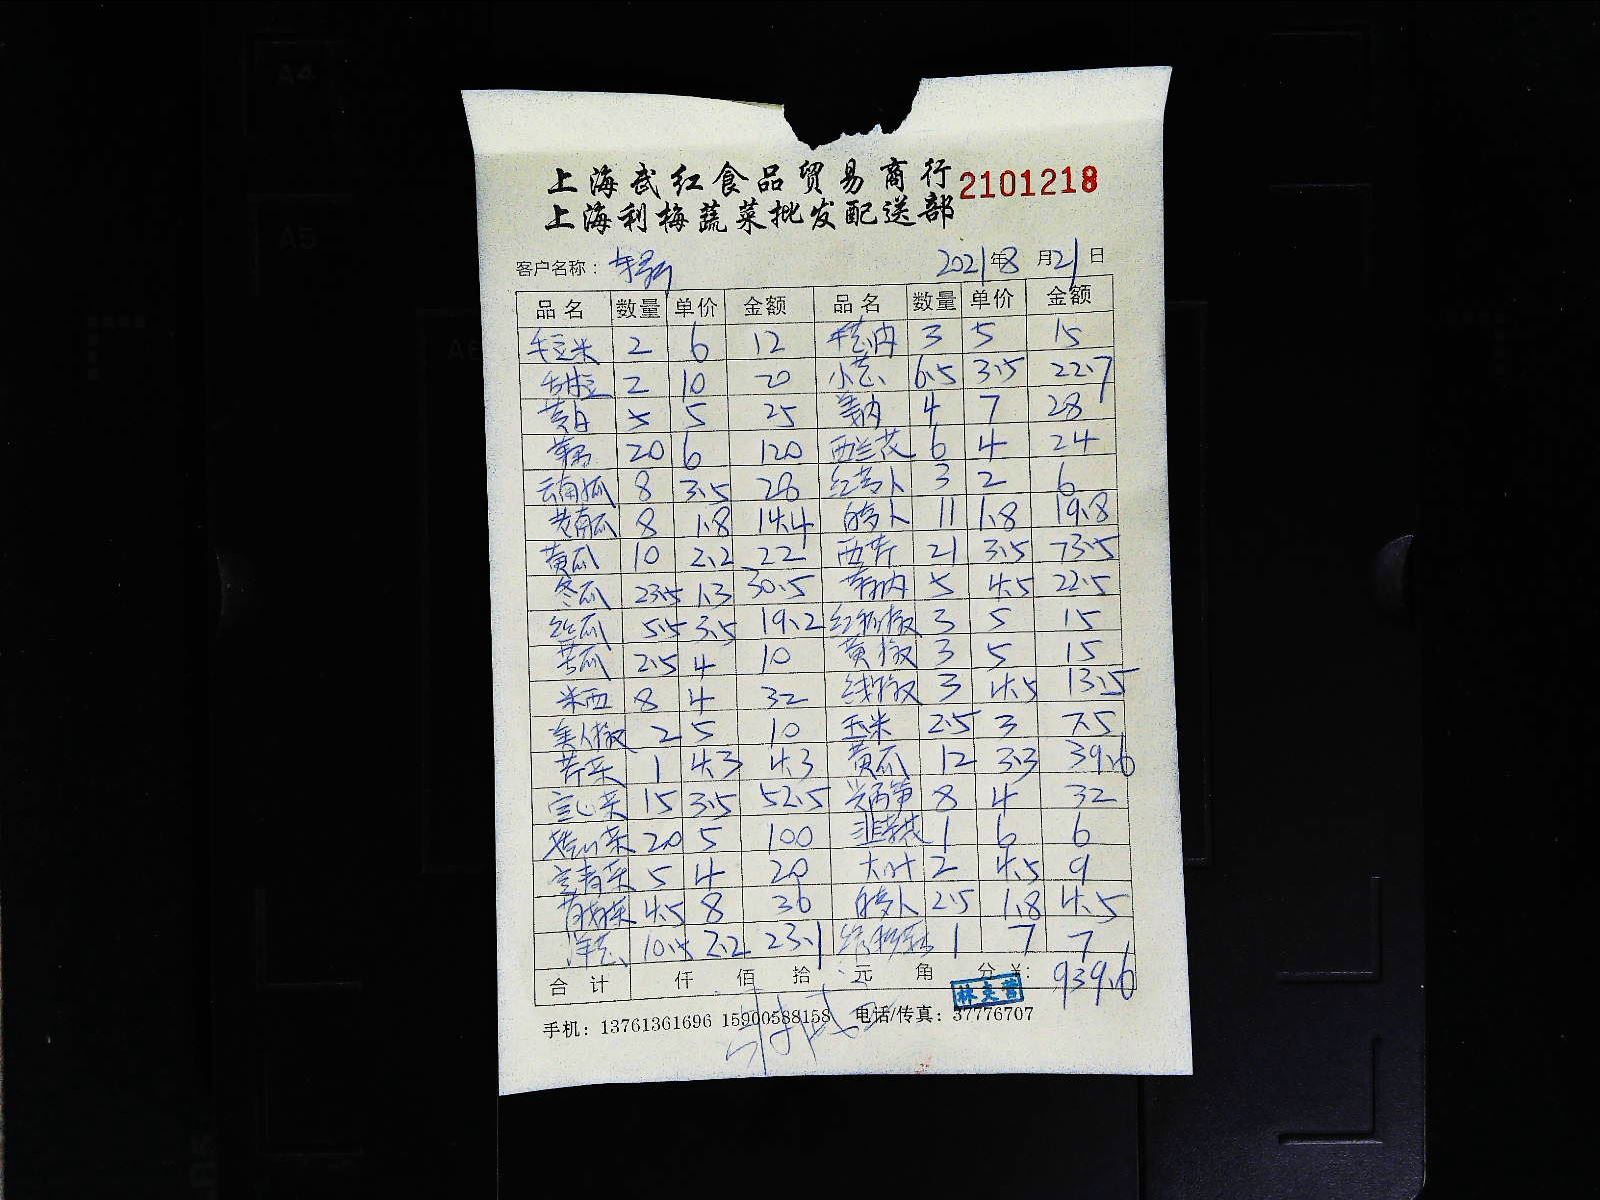 上海武红食品贸易商行 2101218
上海利梅蔬菜批发配送部
客户名称： 2021年8月21日
品名 数量 单价 金额 品名 数量 单价 金额
毛豆米 2 6 12 3 5 15
2 10 20 小芒 6.5 3.5 22.7
5 5 25 4 7 28
20 6 120 西兰花 6 4 24
云南瓜 8 3.5 28 红萝卜 3 2 6
老南瓜 8 1.8 14.4 白萝卜 11 1.8 19.8
黄瓜 10 2.2 22 西芹 21 3.5 73.5
冬瓜 23.5 1.3 30.5 5 4.5 22.5
丝瓜 5.5 3.5 19.2 3 5 15
苦瓜 2.5 4 10 黄椒 3 5 15
米西 8 4 32 线椒 3 4.5 13.5
美人椒 2 5 10 玉米 2.5 3 7.5
芹菜 1 4.3 4.3 黄瓜 12 3.3 39.6
空心菜 15 3.5 52.5 8 4 32
20 5 100 韭菜花 1 6 6
5 4 20 大叶 2 4.5 9
4.5 8 36 白萝卜 2.5 1.8 4.5
洋芒 10.5 2.2 23.1 1 7 7
合计 仟 佰 拾 元 角 分 ¥: 939.6
手机：13761361696 15900588158 电话/传真：37776707